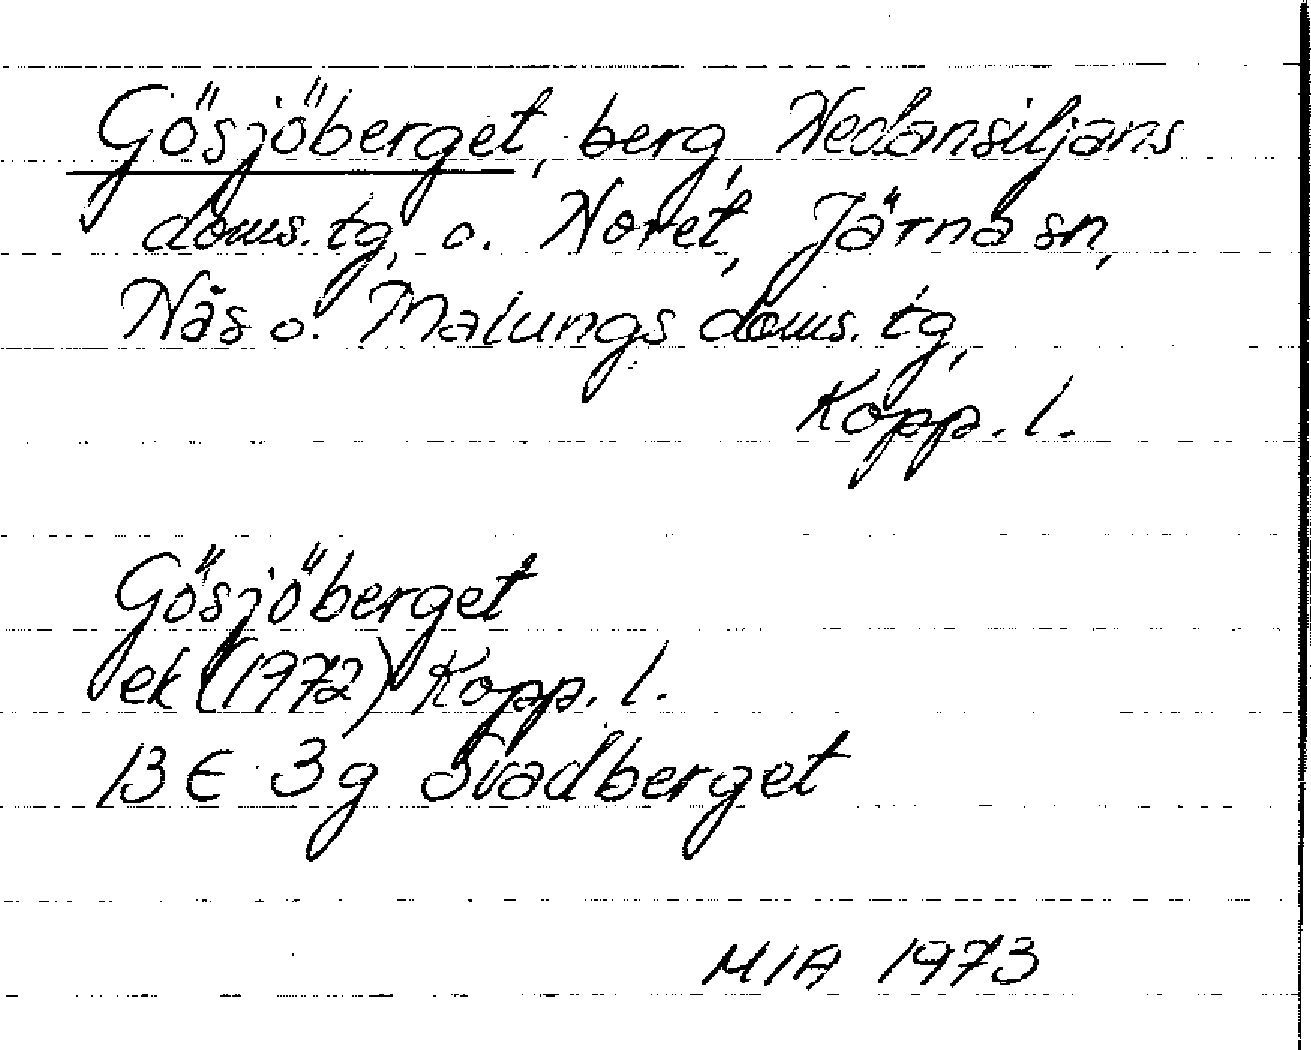 Gösjöberget, berg, Nedansiljans
doms.tg, o. Noret, Järna sn,
Nås o. Malungs doms.tg,
Kopp. l.
Gösjöberget
ek (1972) Kopp. l.
13 E 3g Svadberget
MIA 1973